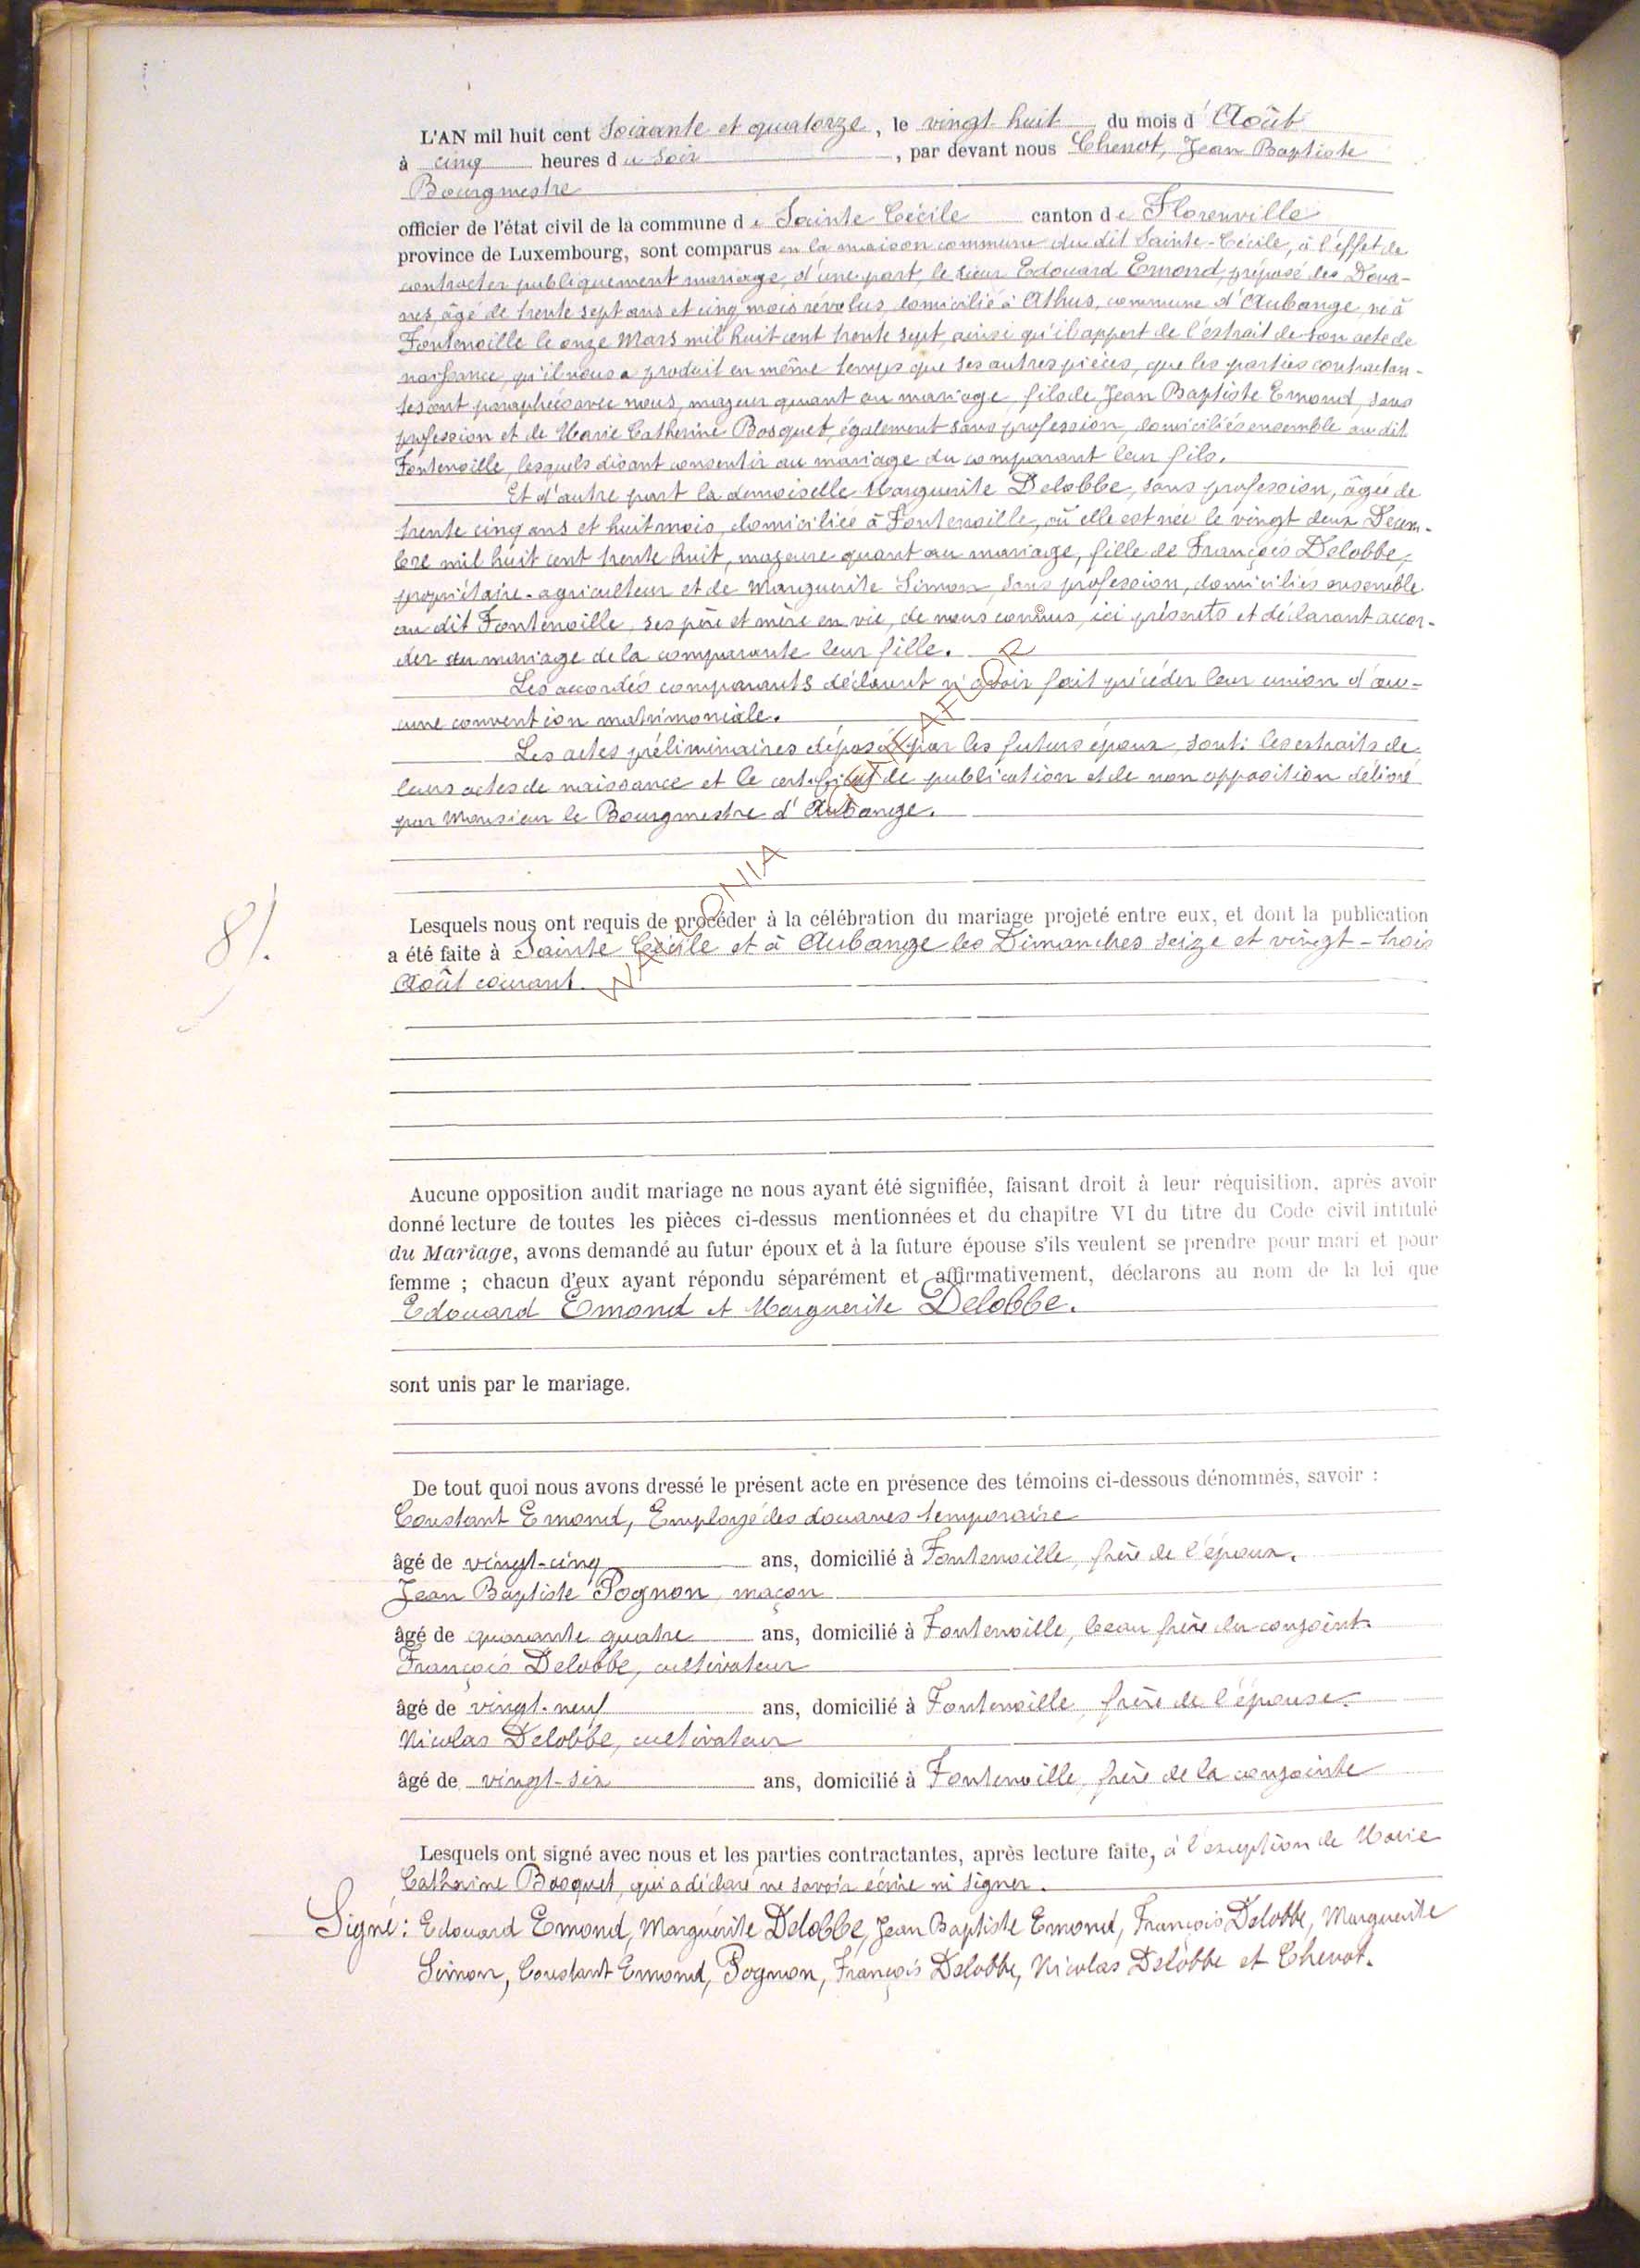 L'AN mil huit cent Soixante et quatorze, le vingt huit du mois d' Août
à cinq heures du soir, par devant nous Chenot, Jean Baptiste
Bourgmestre
officier de l'état civil de la commune de Sainte Cécile canton de Florenville
province de Luxembourg, sont comparus en la maison commune du dit Sainte-Cécile, à l'effet de
contracter publiquement mariage, d'une part, le sieur Edouard Emond, préposé des Doua-
nes, âgé de trente sept ans et cinq mois révolus, domicilié à Athus, commune d'Aubange, né à
Fontenoille le onze Mars mil huit cent trente sept, ainsi qu'il appert de l'extrait de son acte de
naissance qu'il nous a produit en même temps que ses autres pièces, que les parties contractan-
tes ont paraphées avec nous, majeur quant au mariage, fils de Jean Baptiste Emond, sans
profession et de Marie Catherine Bosquet, également sans profession, domiciliés ensemble au dit
Fontenoille, lesquels disant consentir au mariage du comparant leur fils.
Et d'autre part la demoiselle Marguerite Delobbe, sans profession, âgée de
trente cinq ans et huit mois, domiciliée à Fontenoille, où elle est née le vingt deux Décem-
bre mil huit cent trente huit, majeure quant au mariage, fille de François Delobbe,
propriétaire-agriculteur et de Marguerite Simon, sans profession, domiciliés ensemble
au dit Fontenoille, ses père et mère en vie, de nous connus, ici présents et déclarant accor-
der au mariage de la comparante leur fille.
Les accordés comparants déclarent n'avoir fait précéder leur union d'au-
cune convention matrimoniale.
Les actes préliminaires déposés par les futurs époux, sont: les extraits de
leurs actes de naissance et le certificat de publication et de non opposition délivré
par Monsieur le Bourgmestre d'Aubange.
81.
Lesquels nous ont requis de procéder à la célébration du mariage projeté entre eux, et dont la publication
a été faite à Sainte Cécile et à Aubange les Dimanches seize et vingt-trois
Août courant.
Aucune opposition audit mariage ne nous ayant été signifiée, faisant droit à leur réquisition, après avoir
donné lecture de toutes les pièces ci-dessus mentionnées et du chapitre VI du titre du Code civil intitulé
du Mariage, avons demandé au futur époux et à la future épouse s'ils veulent se prendre pour mari et pour
femme ; chacun d'eux ayant répondu séparément et affirmativement, déclarons au nom de la loi que
Edouard Emond et Marguerite Delobbe.
sont unis par le mariage.
De tout quoi nous avons dressé le présent acte en présence des témoins ci-dessous dénommés, savoir :
Constant Emond, Employé des douanes temporaire
âgé de vingt-cinq ans, domicilié à Fontenoille, frère de l'époux.
Jean Baptiste Pognon, maçon
âgé de quarante quatre ans, domicilié à Fontenoille, beau frère du conjoint.
François Delobbe, cultivateur
âgé de vingt-neuf ans, domicilié à Fontenoille, frère de l'épouse.
Nicolas Delobbe, cultivateur
âgé de vingt-six ans, domicilié à Fontenoille, frère de la conjointe
Lesquels ont signé avec nous et les parties contractantes, après lecture faite, à l'exception de Marie
Catherine Bosquet, qui a déclaré ne savoir écrire ni signer.
Signé: Edouard Emond, Marguerite Delobbe, Jean Baptiste Emond, François Delobbe, Marguerite
Simon, Constant Emond, Pognon, François Delobbe, Nicolas Delobbe et Chenot.